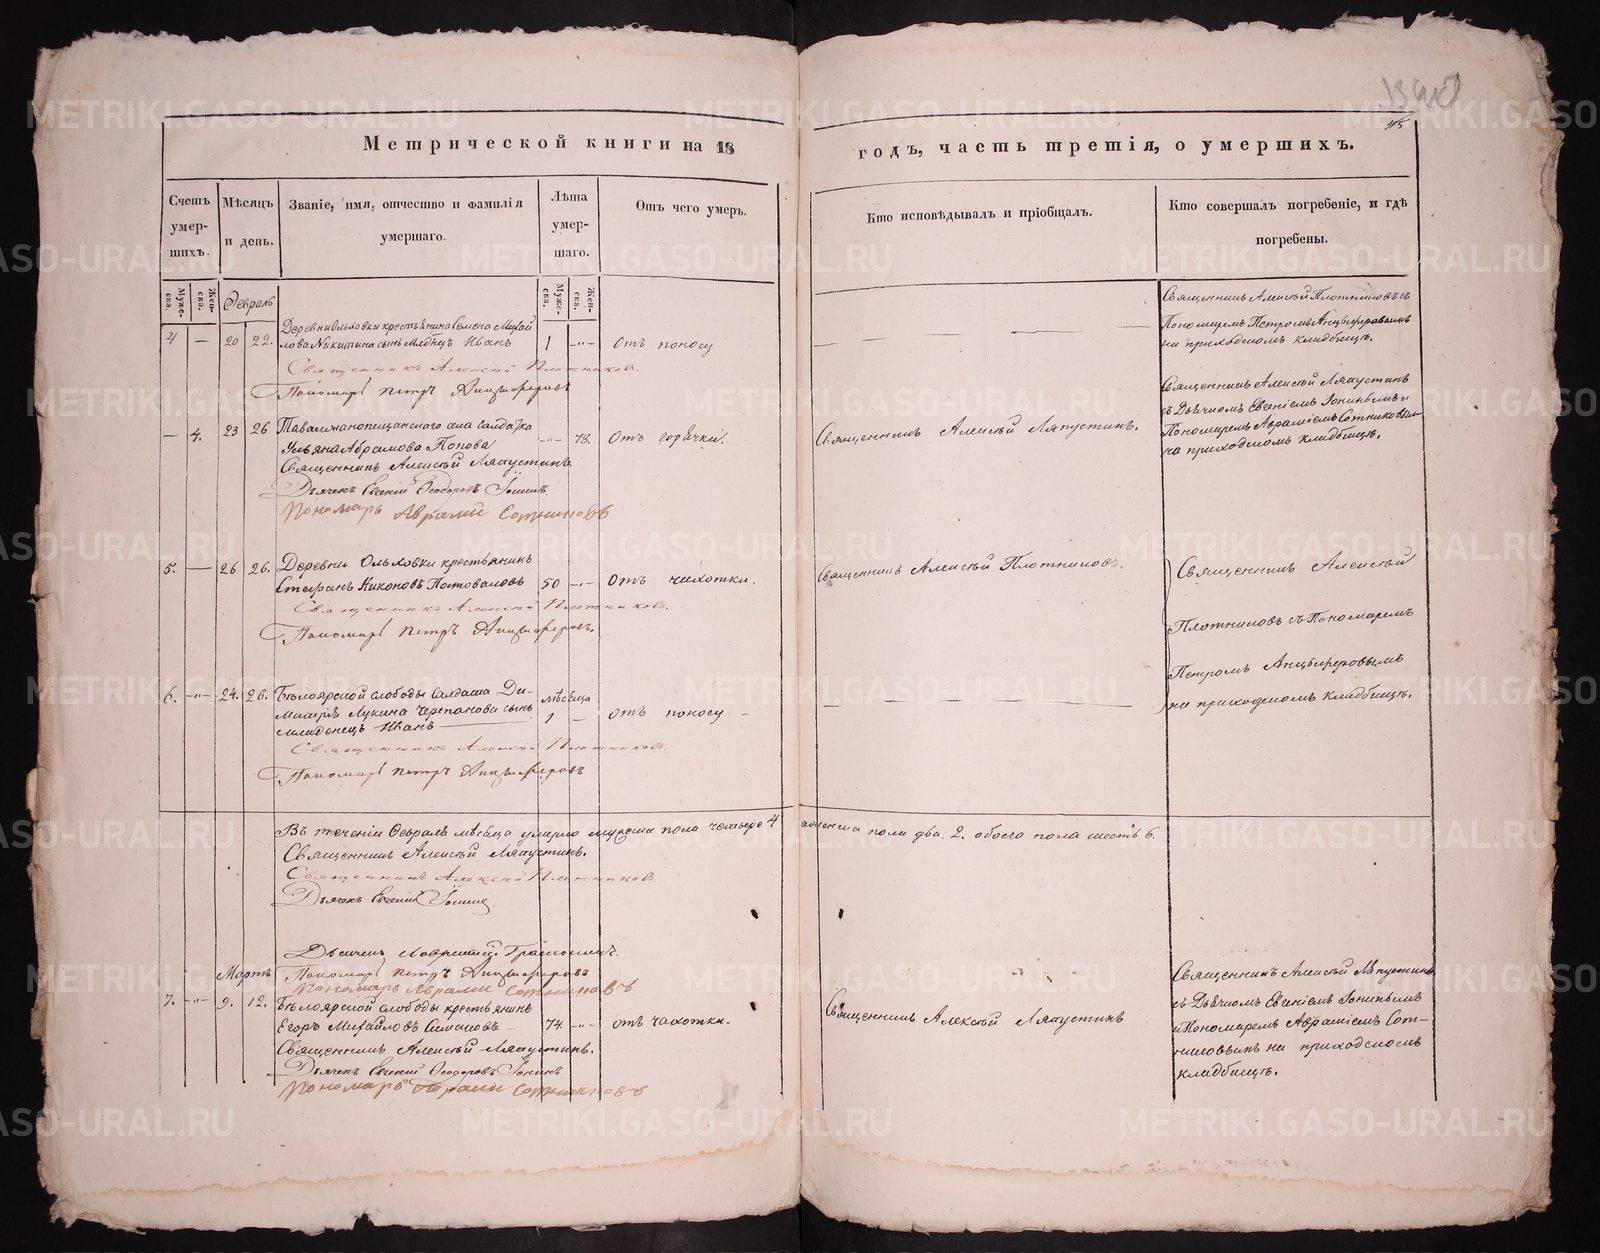 1340
45
Метрической книги на 18
годъ, часть третія, о умершихъ.
Счетъ умер-шихъ.
Мѣсяцъ и день.
Званіе, имя, отчество и фамилія умершаго.
Лѣта умер-шаго.
Отъ чего умеръ.
Кто исповѣдывалъ и пріобщалъ.
Кто совершалъ погребеніе, и гдѣ погребены.
Муже-ска.
Жен-ска.
Февраль
Муже-ска.
Жен-ска.
4 — 20 22.
Деревни Ольховки крестьянина Семена Михай
лова Никитина сынъ Младнцъ Иванъ
1 -„-
Отъ поносу
Священникъ Алексѣй Плотниковъ съ
Пономаремъ Петромъ Анцыферовымъ
на приходскомъ кладбищѣ.
Священникъ Алексѣй Плотниковъ.
Пономарь Петръ Анцыферовъ
— 4. 23 26
села солдатка
Ульяна Абрамова Попова
-„- 78.
Отъ горячки.
Священникъ Алексѣй Ляпустинъ.
Священникъ Алексѣй Ляпустинъ
съ Дьячкомъ Евгеніемъ Іонинымъ и
Пономаремъ Авраміемъ Сотниковымъ
на приходскомъ кладбищѣ.
Священникъ Алексѣй Ляпустинъ
Дьячекъ Евгеній Ѳеодоровъ Іонинъ.
Пономарь Аврамій Сотниковъ
5. — 26 26.
Деревни Ольховки крестьянинъ
Стефанъ Никоновъ Постоваловъ
50 -„-
Отъ чахотки.
Священникъ Алексѣй Плотниковъ.
Священникъ Алексѣй
Плотниковъ съ Пономаремъ
Петромъ Анцыферовымъ
на приходскомъ кладбищѣ.
Священникъ Алексѣй Плотниковъ.
Пономарь Петръ Анцыферовъ.
6. -„- 24. 26.
Бѣлоярской слободы Солдата Ди-
митрія Лукина Черепанова сынъ
младенецъ Иванъ
мѣсяца
1 —
отъ поносу
Священникъ Алексѣй Плотниковъ.
Пономарь Петръ Анцыферовъ
Въ теченіи Февраль мѣсяца умерло мужеска пола четыре 4 женска пола два 2. обоего пола шесть 6.
Священникъ Алексѣй Ляпустинъ.
Священникъ Алексѣй Плотниковъ
Дьячекъ Евгеній Іонинъ
Дьячекъ
Пономарь Петръ Анцыферовъ
Пономарь Аврамій Сотниковъ
Мартъ
7. -„- 9. 12.
Бѣлоярской слободы крестьянинъ
Егоръ Михайловъ Симановъ
74 -„-
отъ чахотки.
Священникъ Алексѣй Ляпустинъ
Священникъ Алексѣй Ляпустинъ
съ Дьячкомъ Евгеніемъ Іонинымъ
и Пономаремъ Авраміемъ Сот-
никовымъ на приходскомъ
кладбищѣ.
Священникъ Алексѣй Ляпустинъ.
Дьячекъ Евгеній Ѳеодоровъ Іонинъ
Пономарь Аврамій Сотниковъ
METRIKI.GASO-URAL.RU